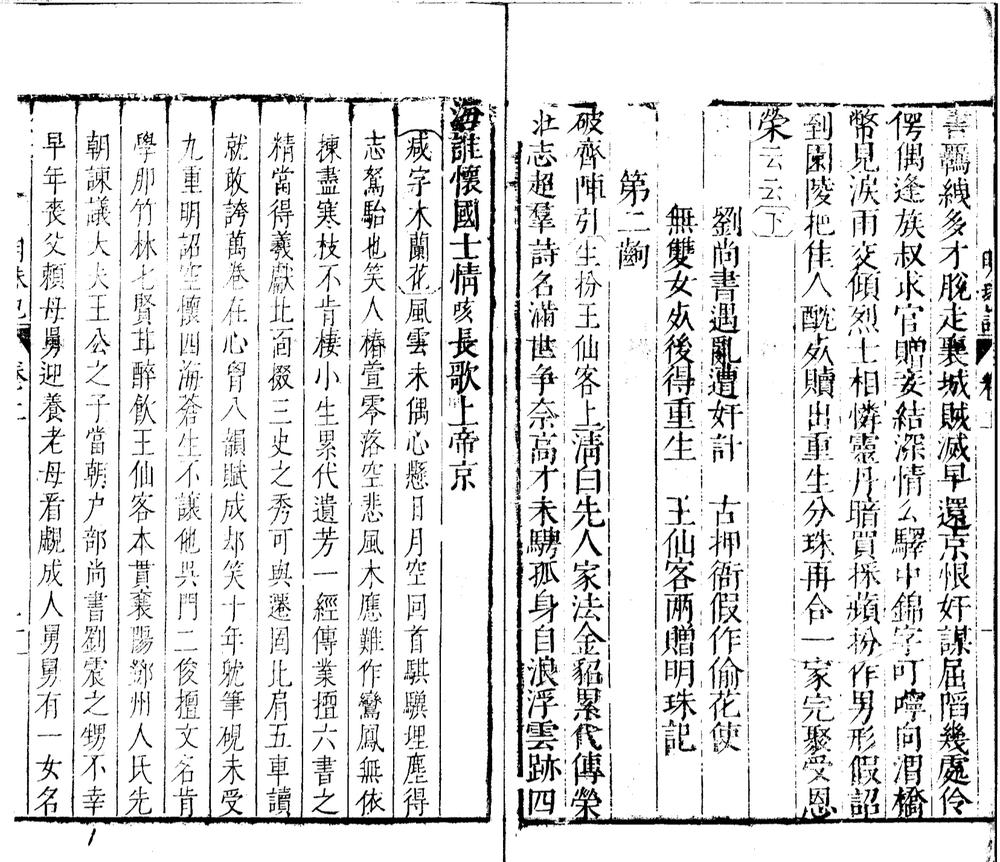 明珠記 卷上 一
書羈絏多才脫走襄城賊滅早還京恨奸謀屈陷幾處伶
俜偶逢族叔求官贈妾結深情公驛中錦字叮嚀向渭橋
幣見淚雨交傾烈士相憐靈丹暗買採蘋扮作男形假詔
到園陵把佳人酖死贖出重生分珠再合一家完聚受恩
榮云云下
劉尚書遇亂遭奸計 古押衙假作偷花使
無雙女死後得重生 王仙客兩贈明珠記
第二齣
破齊陣引生扮王仙客上清白先人家法金貂累代傳榮
壯志超羣詩名滿世爭奈高才未騁孤身自浪浮雲跡四
海誰懷國士情咳長歌上帝京
减字木蘭花風雲未偶心懸日月空回首騏驥埋塵得
志駑駘也笑人椿萱零落空悲風木應難作鸞鳳無依
揀盡寒枝不肯棲小生累代遺芳一經傳業擅六書之
精當得羲獻北面掇三史之秀可與遷固比肩五車讀
就敢誇萬卷在心胷八韻賦成却笑十年兢筆硯未受
九重明詔空懷四海蒼生不讓他吳門二俊擅文名肯
學那竹林七賢茸醉飲王仙客本貫襄陽鄧州人氏先
朝諫議大夫王公之子當朝户部尚書劉震之甥不幸
早年喪父賴母舅迎養老母看覷成人舅舅有一女名
明珠記 卷上